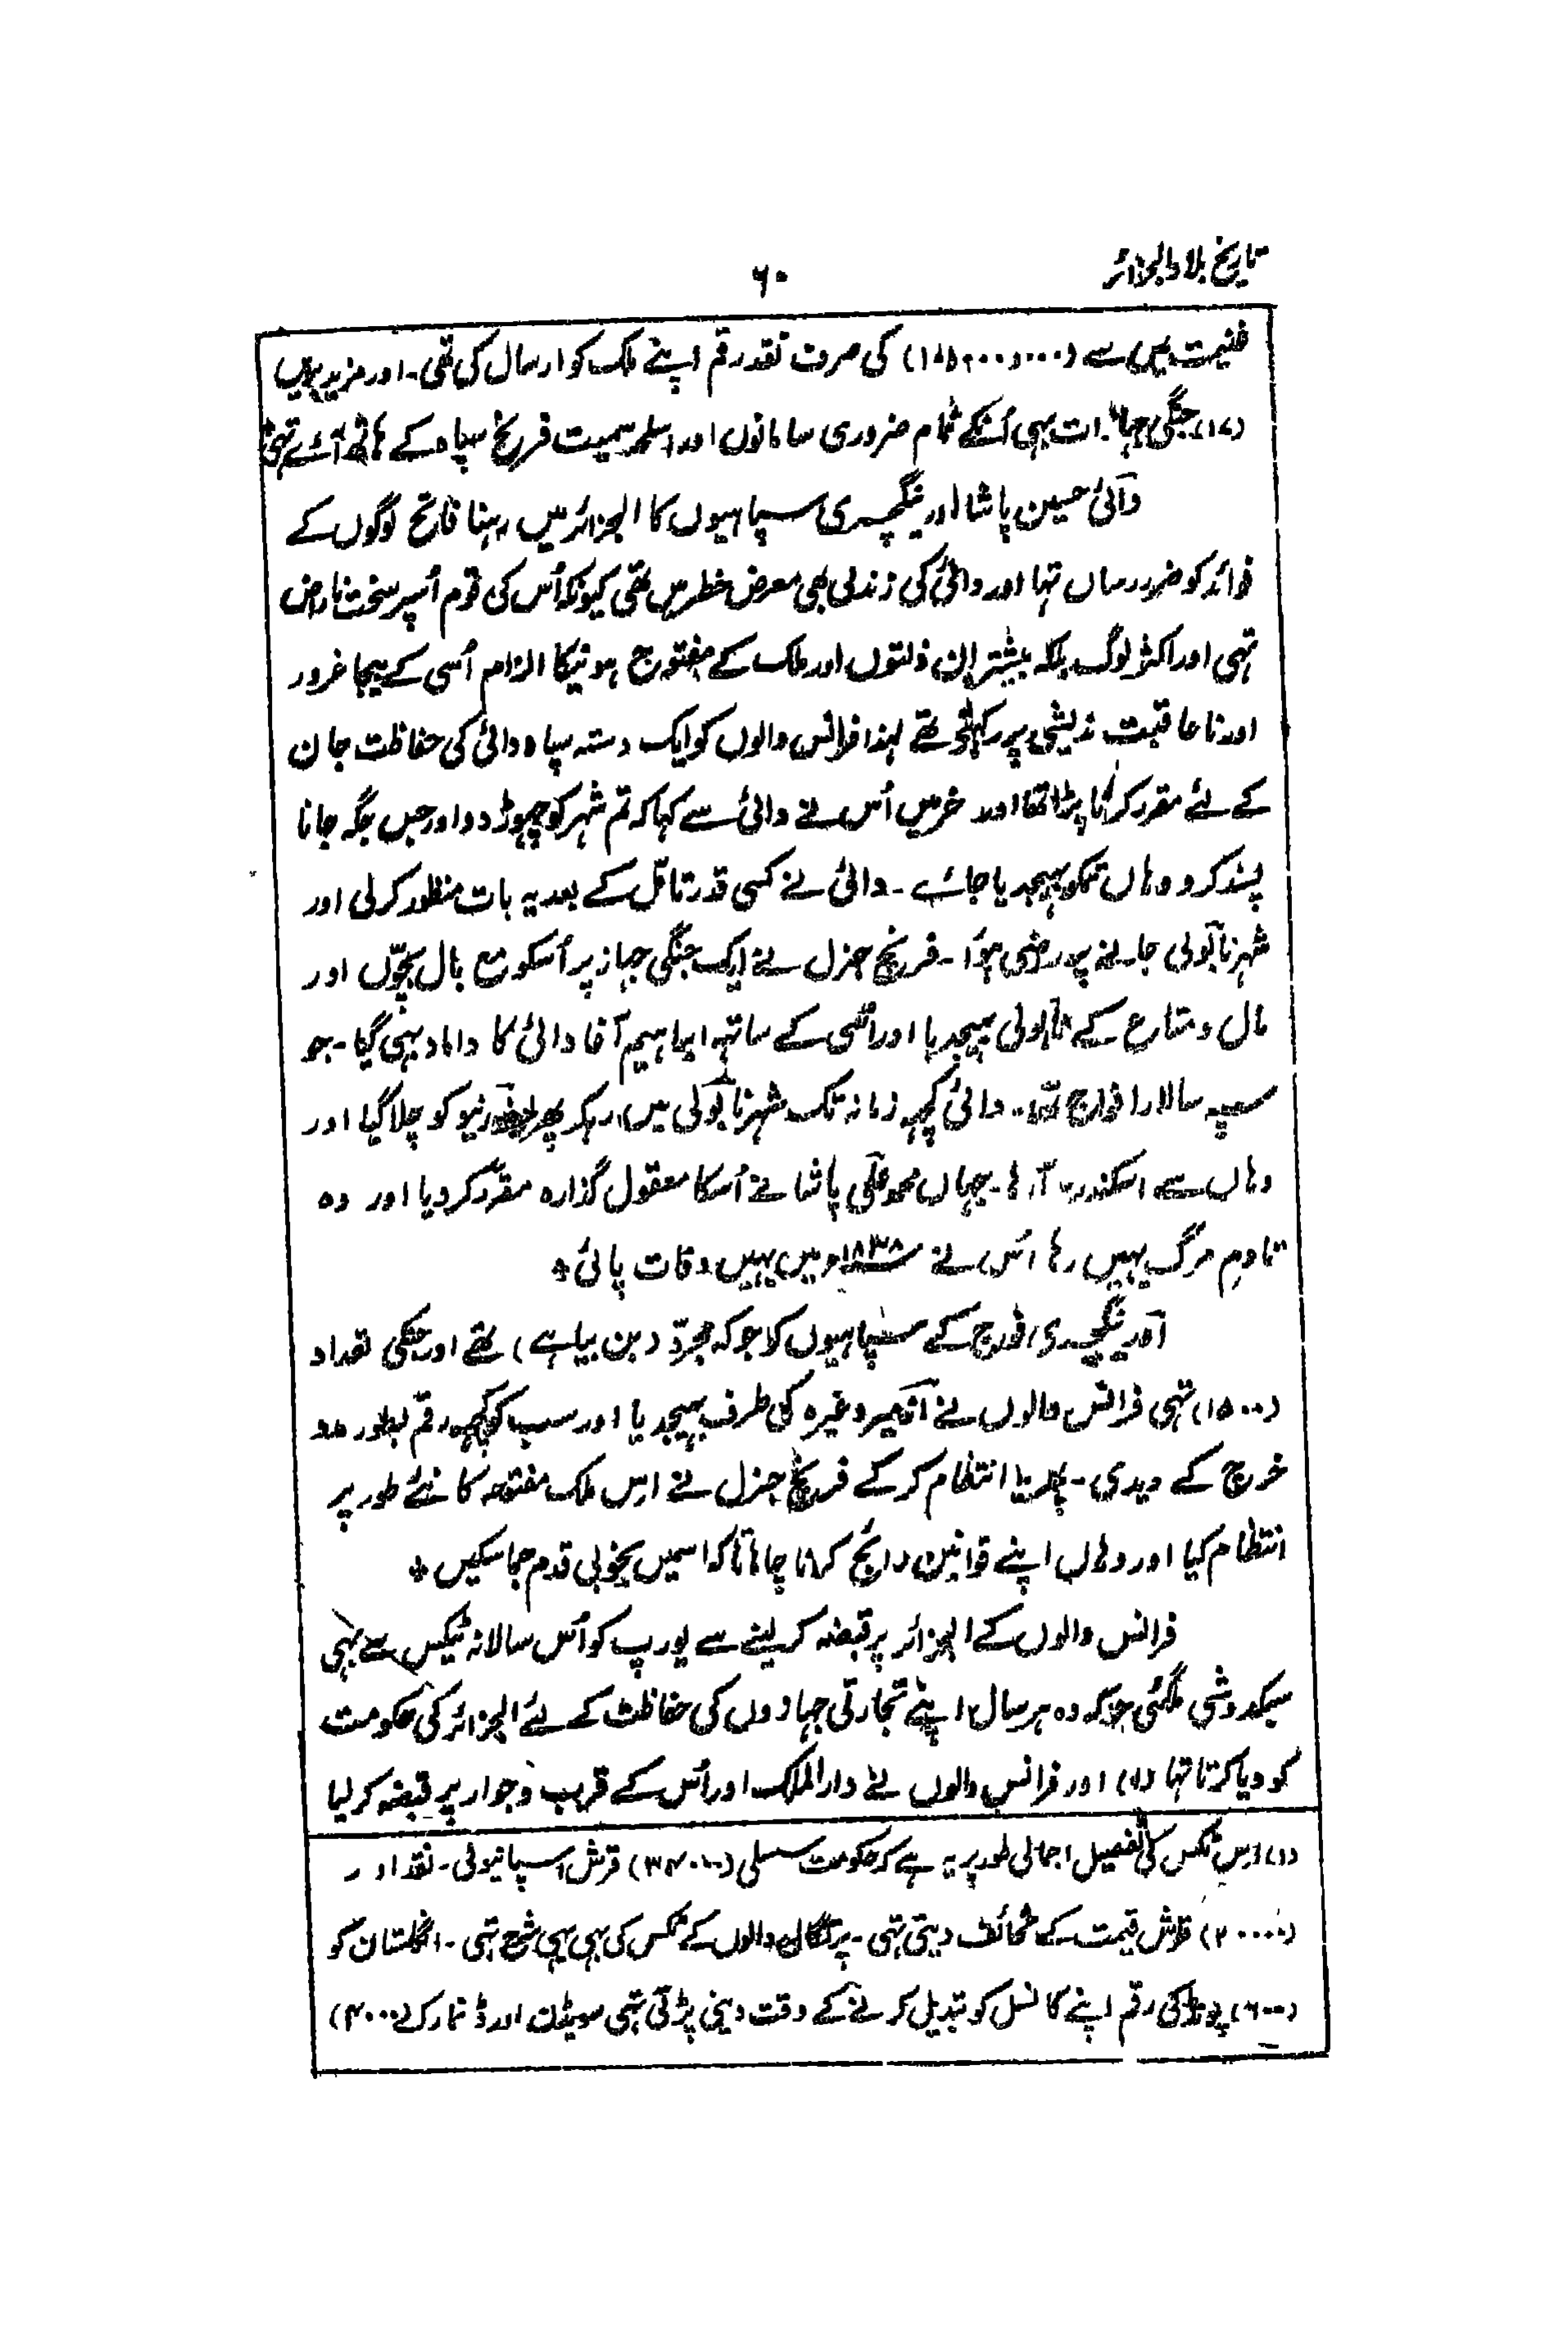 تاریخ بلاد الجزائر
۶۰
غنیمت میں سے کی صرف نقد رقم اپنے ملک کو ارسال کی تھی۔ اور مزید بریں
(۱۷) جنگی جہازات بہی اُنکے تمام ضروری سامانوں اور اسلحہ سمیت فرنچ سپاہ کے ہاتھ آئے تہے
دائی حسین پاشا اور ینگچری سپاہیوں کا الجزائر میں رہنا فاتح لوگوں کے
فوائد کو ضرر رساں تہا اور دائی کی زندگی بھی معرض خطر میں تھی کیونکہ اُس کی قوم اُسپر سخت ناراض
تہی اور اکثر لوگ بلکہ بیشتر اِن ذلتوں اور ملک کے مفتوح ہونیکا الزام اُسی کے بیجا غرور
اور ناعاقبت اندیشی پر رکہتے تھے لہذا فرانس والوں کو ایک دستہ سپاہ دائی کی حفاظت جان
کے لئے مقرر کرنا پڑا تھا اور آخر میں اُس نے دائی سے کہا کہ تم شہر کو چہوڑ دو اور جس جگہ جانا
پسند کرو وہاں تمکو بہیجدیا جائے۔ دائی نے کسی قدر تامّل کے بعد یہ بات منظور کر لی اور
شہر ناپولی جانے پر راضی ہوا۔ فرنچ جنرل نے ایک جنگی جہاز پر اُسکو مع بال بچّوں اور
مال و متاع کے ناپولی بہیجدیا اور اُسی کے ساتہہ ابراہیم آغا دائی کا داماد بہی گیا۔ جو
سپہ سالار افواج تہا۔ دائی کچہہ زمانہ تک شہر ناپولی میں رہکر پھر کو چلا گیا اور
وہاں سے اسکندریہ آ رہا۔ جہاں محمد علی پاشا نے اُسکا معقول گذارہ مقرّر کر دیا اور وہ
تادمِ مرگ یہیں رہا اُس نے ۱۸۳۸ء میں یہیں وفات پائی ٭
اور ینگچری فوج کے سپاہیوں کو جو کہ مجرّد (بن بیاہے) تھے اور جنکی تعداد
(۱۵۰۰) تہی فرانس والوں نے ازمیر وغیرہ کی طرف بہیجدیا اور سب کو کچہہ رقم بطور مدد
خرچ کے دیدی۔ پہر یہ انتظام کر کے فرنچ جنرل نے اِس ملک مفتوحہ کا نئے طور پر
انتظام کیا اور وہاں اپنے قوانین رائج کرنا چاہا تاکہ اسمیں بخوبی قدم جما سکیں ٭
فرانس والوں کے الجزائر پر قبضہ کر لینے سے یورپ کو اُس سالانہ ٹیکس سے بہی
سبکدوشی ملگئی جو کہ وہ ہر سال اپنے تجارتی جہازوں کی حفاظت کے لئے الجزائر کی حکومت
کو دیا کرتا تہا (۱) اور فرانس والوں نے دارالملک اور اُس کے قرب و جوار پر قبضہ کر لیا
(۱) اِس ٹکس کی تفصیل اجمالی طور پر یہ ہے کہ حکومت سسلی (۲۴۰۰۰) قرش اسپانیولی۔ نقد اور
(۲۰۰۰۰) قرش قیمت کے تحائف دیتی تہی۔ پرتگال والوں کے ٹکس کی بہی یہی شرح تہی۔ انگلستان کو
(۶۰۰) پونڈ کی رقم اپنے کانسل کو تبدیل کرنے کے وقت دینی پڑتی تہی سویڈن اور ڈنمارک (۴۰۰۰)